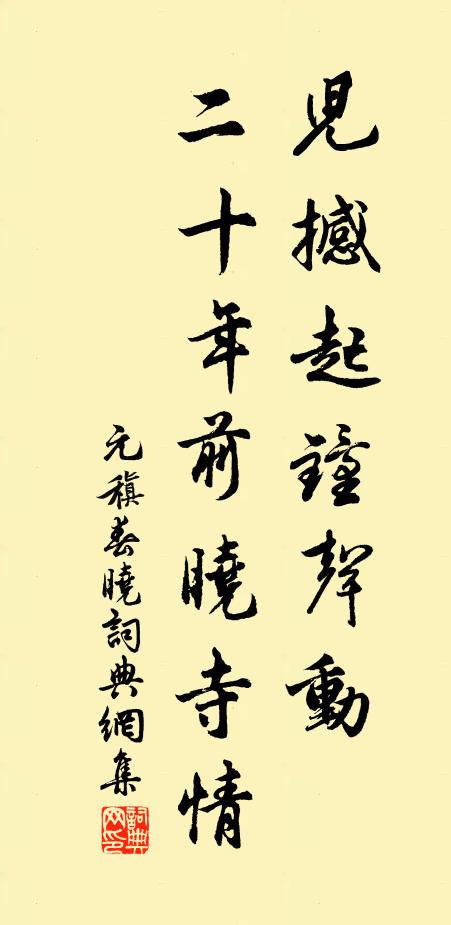 児撼起鐘聲動
二十年前曉寺情
元稹春曉詞典網集
詞典網印